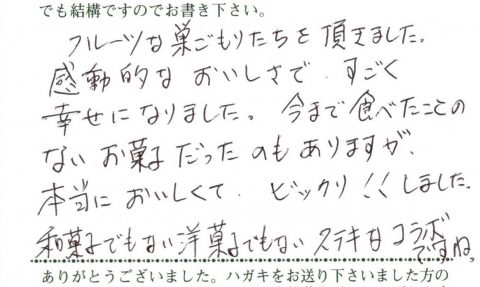 でも結構ですのでお書き下さい。
フルーツな巣ごもりたちを頂きました。
感動的な おいしさで、すごく
幸せになりました。今まで食べたことの
ない お菓子だったのもありますが、
本当に おいしくて、ビックリ！！しました。
和菓子でもない洋菓子でもない ステキなコラボ
ですね。
ありがとうございました。ハガキをお送り下さいました方の